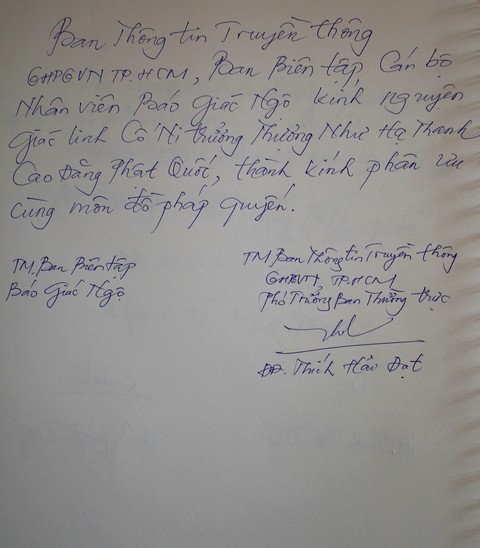 Ban Thông tin Truyền thông
GHPGVN TP.HCM, Ban Biên tập, Cán bộ
Nhân viên Báo Giác Ngộ kính nguyện
Giác linh Cố Ni trưởng Thượng Như Hạ Thanh
Cao Đăng Phật Quốc, thành kính phân ưu
cùng môn đồ pháp quyến.
TM. Ban Biên tập
Báo Giác Ngộ
TM Ban Thông tin Truyền thông
GHPGVN, TP.HCM
Phó Trưởng Ban Thường trực
ĐĐ. Thích Hảo Đạt